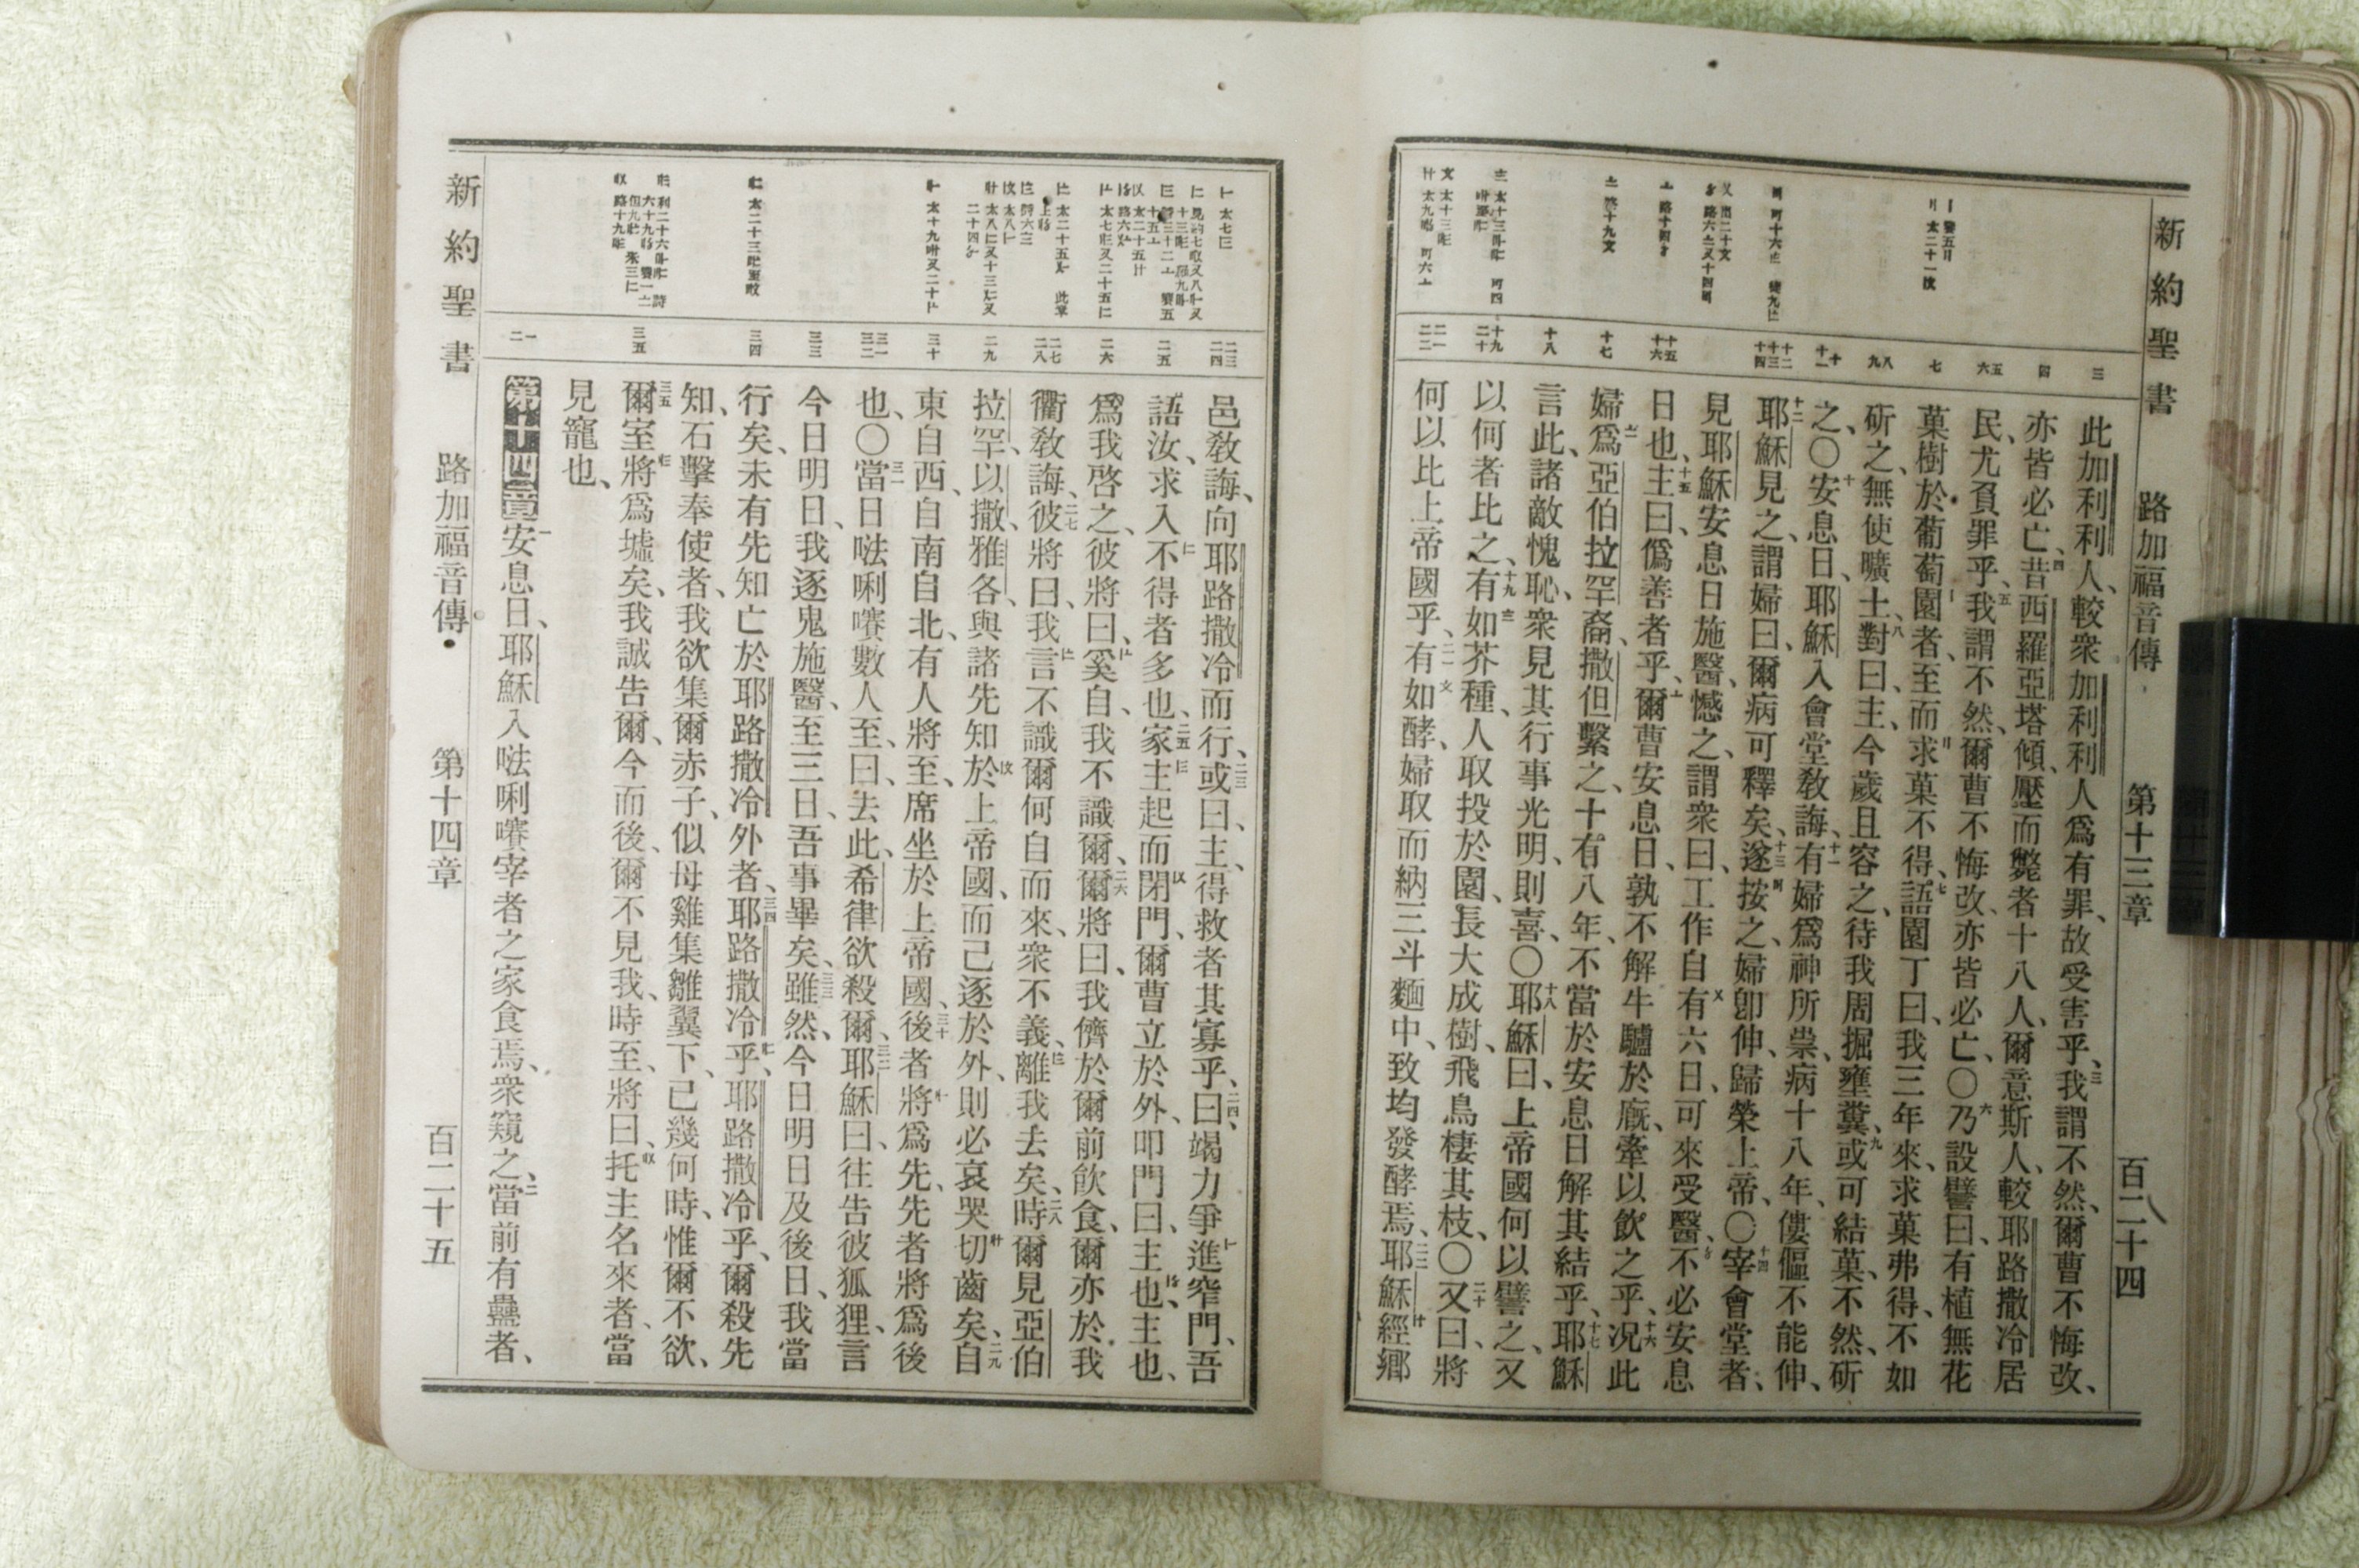 新約聖書 路加福音傳 第十三章 百二十四
三
四
五六
七
八九
十十一
十二十三十四
十五十六
十七
十八
十九二十
二一二二
此加利利人、較衆加利利人爲有罪、故受害乎、三我謂不然、爾曹不悔改、
亦皆必亡、四昔西羅亞塔傾、壓而斃者十八人、爾意斯人、較耶路撒冷居
民、尤負罪乎、五我謂不然、爾曹不悔改、亦皆必亡、〇六乃設譬曰、有植無花
菓樹於葡萄園者、至而求菓不得、七語園丁曰、我三年來、求菓弗得、不如
斫之、無使曠土、八對曰、主、今歲且容之、待我周掘壅糞、九或可結菓、不然、斫
之、〇十安息日、耶穌入會堂敎誨、十一有婦爲神所祟、病十八年、傴僂不能伸、
十二耶穌見之、謂婦曰、爾病可釋矣、十三遂按之、婦卽伸、歸榮上帝、〇十四宰會堂者、
見耶穌安息日施醫、憾之、謂衆曰、工作自有六日、可來受醫、不必安息
日也、十五主曰、僞善者乎、爾曹安息日、孰不解牛驢於廐、牽以飮之乎、十六况此
婦爲亞伯拉罕裔、撒但繫之、十有八年、不當於安息日解其結乎、十七耶穌
言此、諸敵愧恥、衆見其行事光明、則喜、〇十八耶穌曰、上帝國何以譬之、又
以何者比之、十九有如芥種、人取投於園、長大成樹、飛鳥棲其枝、〇二十又曰、將
何以比上帝國乎、二一有如酵、婦取而納三斗麵中、致均發酵焉、二二耶穌經鄉
二三二四
二五
二六
二七二八
二九
三十
三一三二
三三
三四
三五
一二
邑敎誨、向耶路撒冷而行、二三或曰、主、得救者其寡乎、二四曰、竭力爭進窄門、吾
語汝、求入不得者多也、二五家主起而閉門、爾曹立於外、叩門曰、主也、主也、
爲我啓之、彼將曰、奚自、我不識爾、二六爾將曰、我儕於爾前飮食、爾亦於我
衢敎誨、二七彼將曰、我言不識爾何自而來、衆不義、離我去矣、二八時爾見亞伯
拉罕、以撒、雅各、與諸先知於上帝國、而己逐於外、則必哀哭切齒矣、二九自
東自西、自南自北、有人將至、席坐於上帝國、三十後者將爲先、先者將爲後
也、〇三一當日𠵽唎㘔數人至、曰、去此、希律欲殺爾、三二耶穌曰、往告彼狐狸、言
今日明日、我逐鬼施醫、至三日、吾事畢矣、三三雖然、今日明日及後日、我當
行矣、未有先知亡於耶路撒冷外者、三四耶路撒冷乎、耶路撒冷乎、爾殺先
知、石擊奉使者、我欲集爾赤子、似母雞集雛翼下、已幾何時、惟爾不欲、
三五爾室將爲墟矣、我誠告爾、今而後、爾不見我、時至、將曰、托主名來者、當
見寵也、
第十四章 一安息日、耶穌入𠵽唎㘔宰者之家食焉、衆窺之、二當前有蠱者、
新約聖書 路加福音傳 第十四章 百二十五